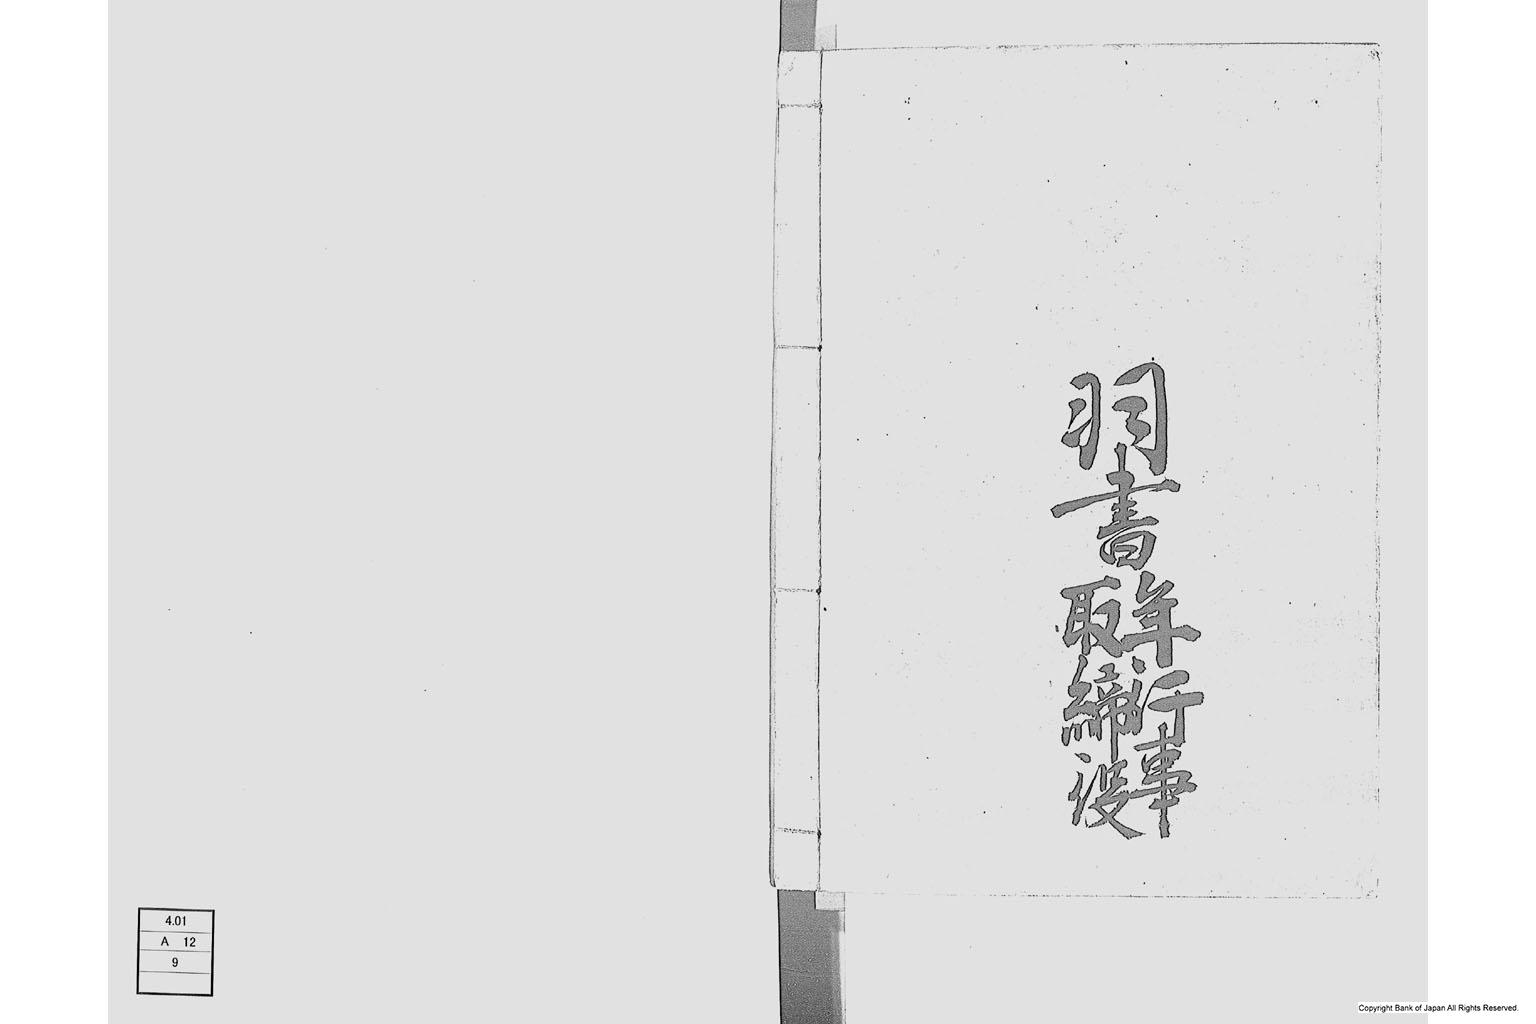 羽書
年行事
取締役
4.01
A 12
9
Copyright Bank of Japan All Rights Reserved.